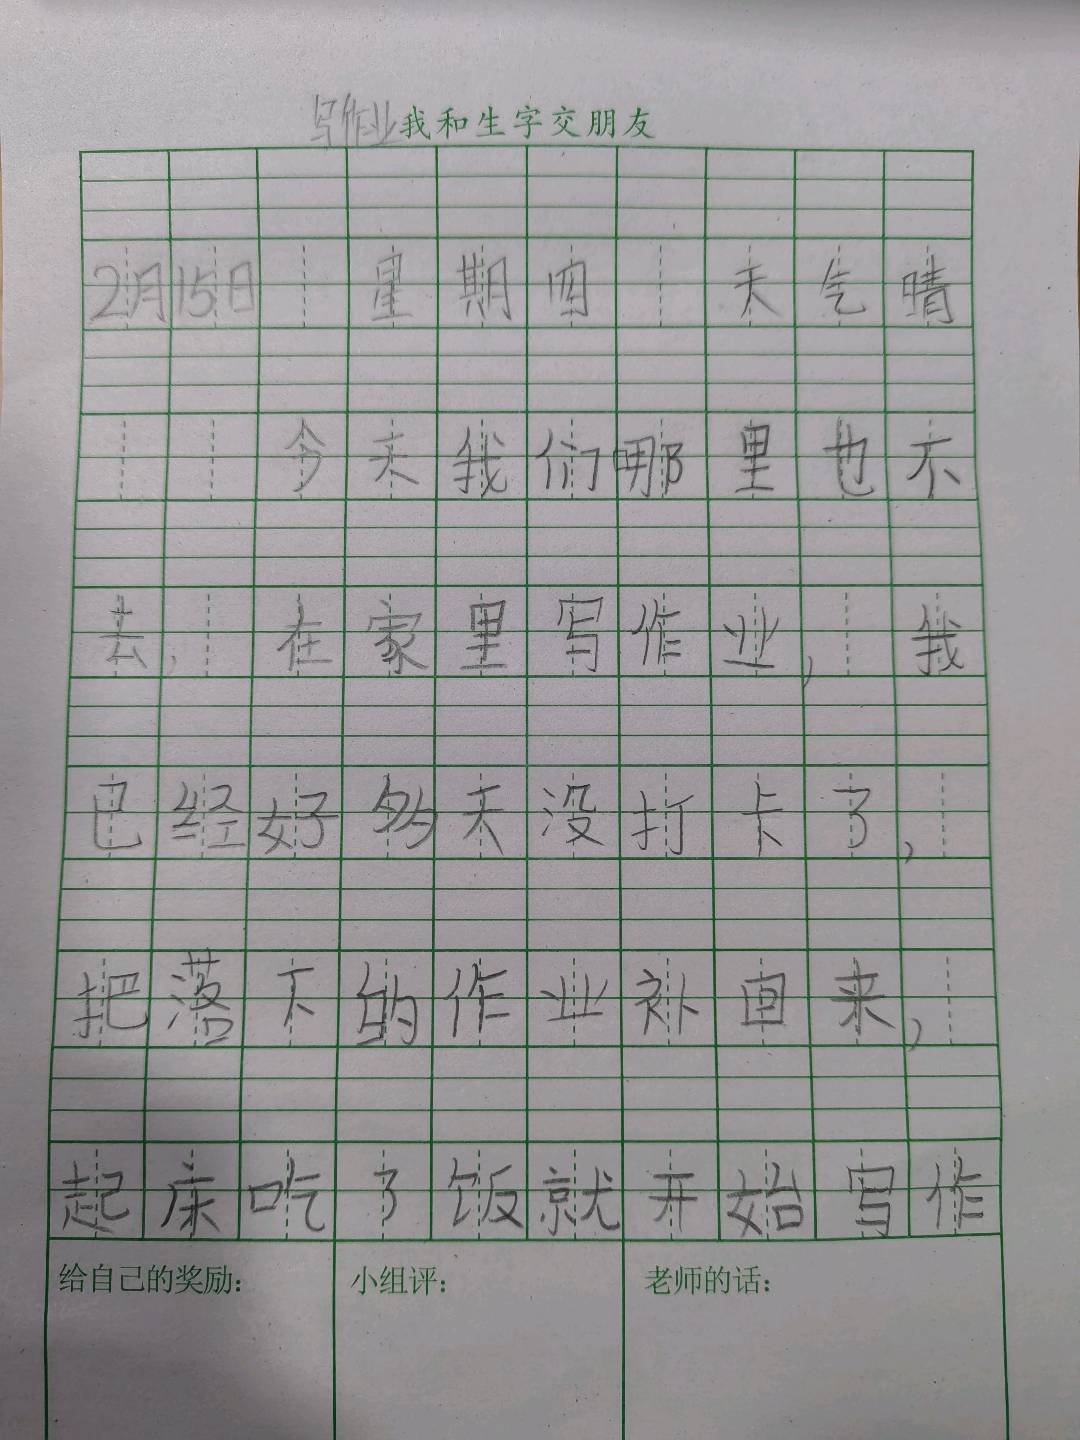 写作业我和生字交朋友
2月15日 星期四 天气晴
今天我们哪里也不
去,在家里写作业,我
已经好多天没打卡了,
把落下的作业补回来,
起床吃了饭就开始写作
给自己的奖励: 小组评: 老师的话: